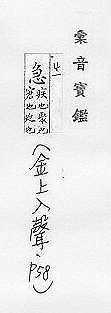 彙音寶鑑
急 疾也聚也
窘也迫也
(金上入聲, p58)